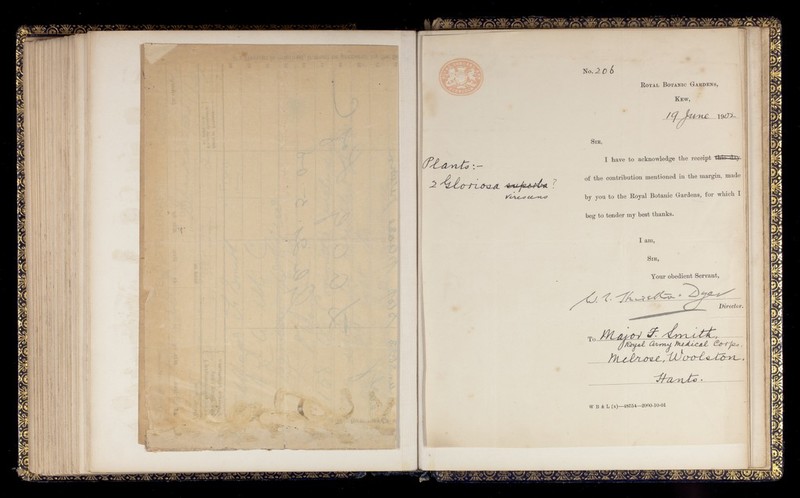 No. 206
ROYAL BOTANIC GARDENS,
KEW,
19 June 1902
SIR,
I have to acknowledge the receipt this day
of the contribution mentioned in the margin, made
by you to the Royal Botanic Gardens, for which I
beg to tender my best thanks.
Plants:-
2 Gloriosa superba?
virescens
I am,
SIR,
Your obedient Servant,
W. T. Thiselton-Dyer
Director.
To Major F. Smith,
Royal Army Medical Corps.
Melrose, Woolston.
Hants.
W B & L (s)—48614—2000-10-01